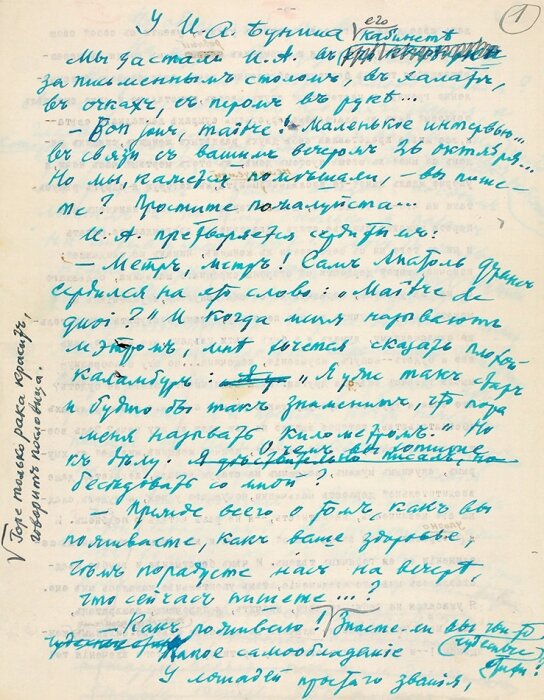 1
У И. А. Бунина
Мы застали И. А. въ его кабинетѣ
за письменнымъ столомъ, въ халатѣ,
въ очкахъ, съ перомъ въ рукѣ...
— Bonjour, maître! Маленькое интервью...
въ связи съ вашимъ вечеромъ 26 октября...
Но мы, кажется, помѣшали, — вы пише-
те? Простите пожалуйста...
И. А. претворяется сердитымъ:
— Мэтръ, мэтръ! Самъ Анатоль Франсъ
сердился на это слово: „Maître de
quoi?" И когда меня называютъ
мэтромъ, мнѣ хочется сказать плохой
каламбуръ: „Я уже такъ старъ
и будто бы такъ знаменитъ, что пора
меня называть километромъ." Но
къ дѣлу. О чемъ вы хотите
бесѣдовать со мной?
— Прежде всего о томъ, какъ вы
поживаете, какъ ваше здоровье,
чѣмъ порадуете насъ на вечерѣ,
что сейчасъ пишете...?
— Какъ поживаю!
Какое самообладание
У лошадей простого званія,
Горе только рака красить,
говоритъ пословица.